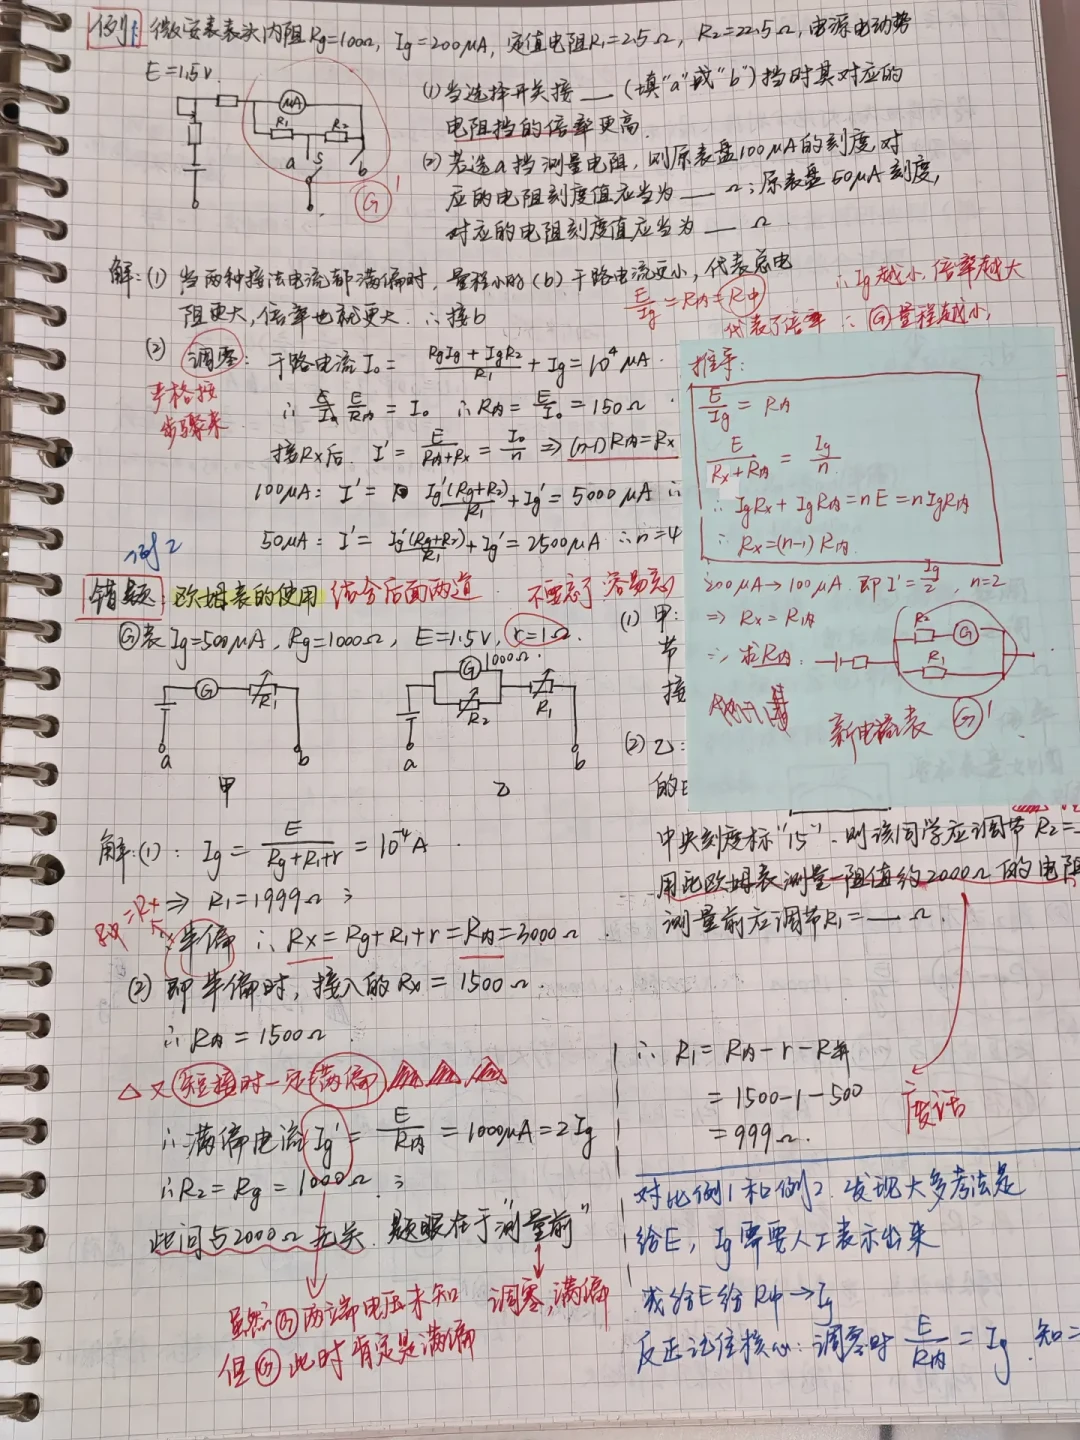 例1 微安表表头内阻Rg=100Ω, Ig=200μA, 定值电阻R₁=2.5Ω, R₂=22.5Ω, 电源电动势
E=1.5V.
μA
R₁
R₂
a
S
b
G'
(1)当选择开关接 ___ (填"a"或"b")挡时其对应的
电阻挡的倍率更高.
(2)若选a挡测量电阻, 则原表盘100μA的刻度对
应的电阻刻度值应当为 ___ Ω; 原表盘50μA刻度,
对应的电阻刻度值应当为 ___ Ω
解:(1) 当两种接法电流都满偏时, 量程小的(b)干路电流更小, 代表总电
阻更大, 倍率也就更大. ∴接b
E/Ig = R内 = R中
代表了倍率
∴Ig越小, 倍率越大
∴ G量程越小,
(2) 调零: 干路电流I₀ = (RgIg+IgR₂)/R₁ + Ig = 10⁴μA.
严格按
步骤来
∴ E/R内 = I₀ ∴R内 = E/I₀ = 150Ω
接Rx后. I' = E/(R内+Rx) = I₀/n ⇒ (n-1)R内=Rx
100μA: I' = Ig'(Rg+R₂)/R₁ + Ig' = 5000μA ∴
50μA: I' = Ig'(Rg+R₂)/R₁ + Ig' = 2500μA ∴n=4
推导:
E/Ig = R内
E/(Rx+R内) = Ig/n.
∴IgRx+IgR内=nE=nIgR内
∴ Rx=(n-1)R内.
200μA→100μA. 即I'=Ig/2, n=2
⇒ Rx=R内
∴求R内:
R₂
G
R₁
新电流表 G'
例2
错题: 欧姆表的使用 结合后面两道. 不要忘了 容易忘
G表Ig=500μA, Rg=1000Ω, E=1.5V, r=1Ω.
G
R₁
a
b
甲
G
1000Ω.
R₂
R₁
a
b
乙
(1) 甲:
节
接
(2) 乙:
的
中央刻度标"15". 则该同学应调节R₂=
用此欧姆表测量一阻值约2000Ω的电阻
测量前应调节R₁= ___ Ω.
废话
解:(1): Ig = E/(Rg+R₁+r) = 10⁻⁴A
⇒ R₁=1999Ω;
半偏 ∴Rx=Rg+R₁+r=R内=3000Ω.
(2) 即半偏时, 接入的Rx=1500Ω.
∴R内=1500Ω.
△又短接时一定满偏
∴满偏电流Ig' = E/R内 = 1000μA=2Ig
∴R₂=Rg=1000Ω;
此问与2000Ω无关. 题眼在于"测量前"
调零, 满偏
虽然G两端电压未知
但G此时肯定是满偏
∴ R₁=R内-r-R并
=1500-1-500
=999Ω.
对比例1和例2. 发现大多考法是
给E, Ig需要人工表示出来
或给E给R中→Ig
反正记住核心: 调零时 E/R内 = Ig. 知二